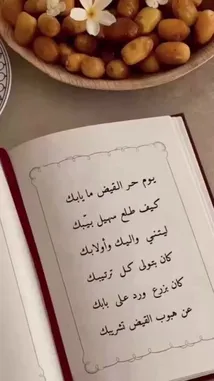 يوم حر القيض ما يابك
كيف طلع سهيل بيّبك
ليتني واليك وأولابك
كان يتولى كل ترتيبك
كان يزرع ورد على بابك
عن هبوب القيض تشريبك